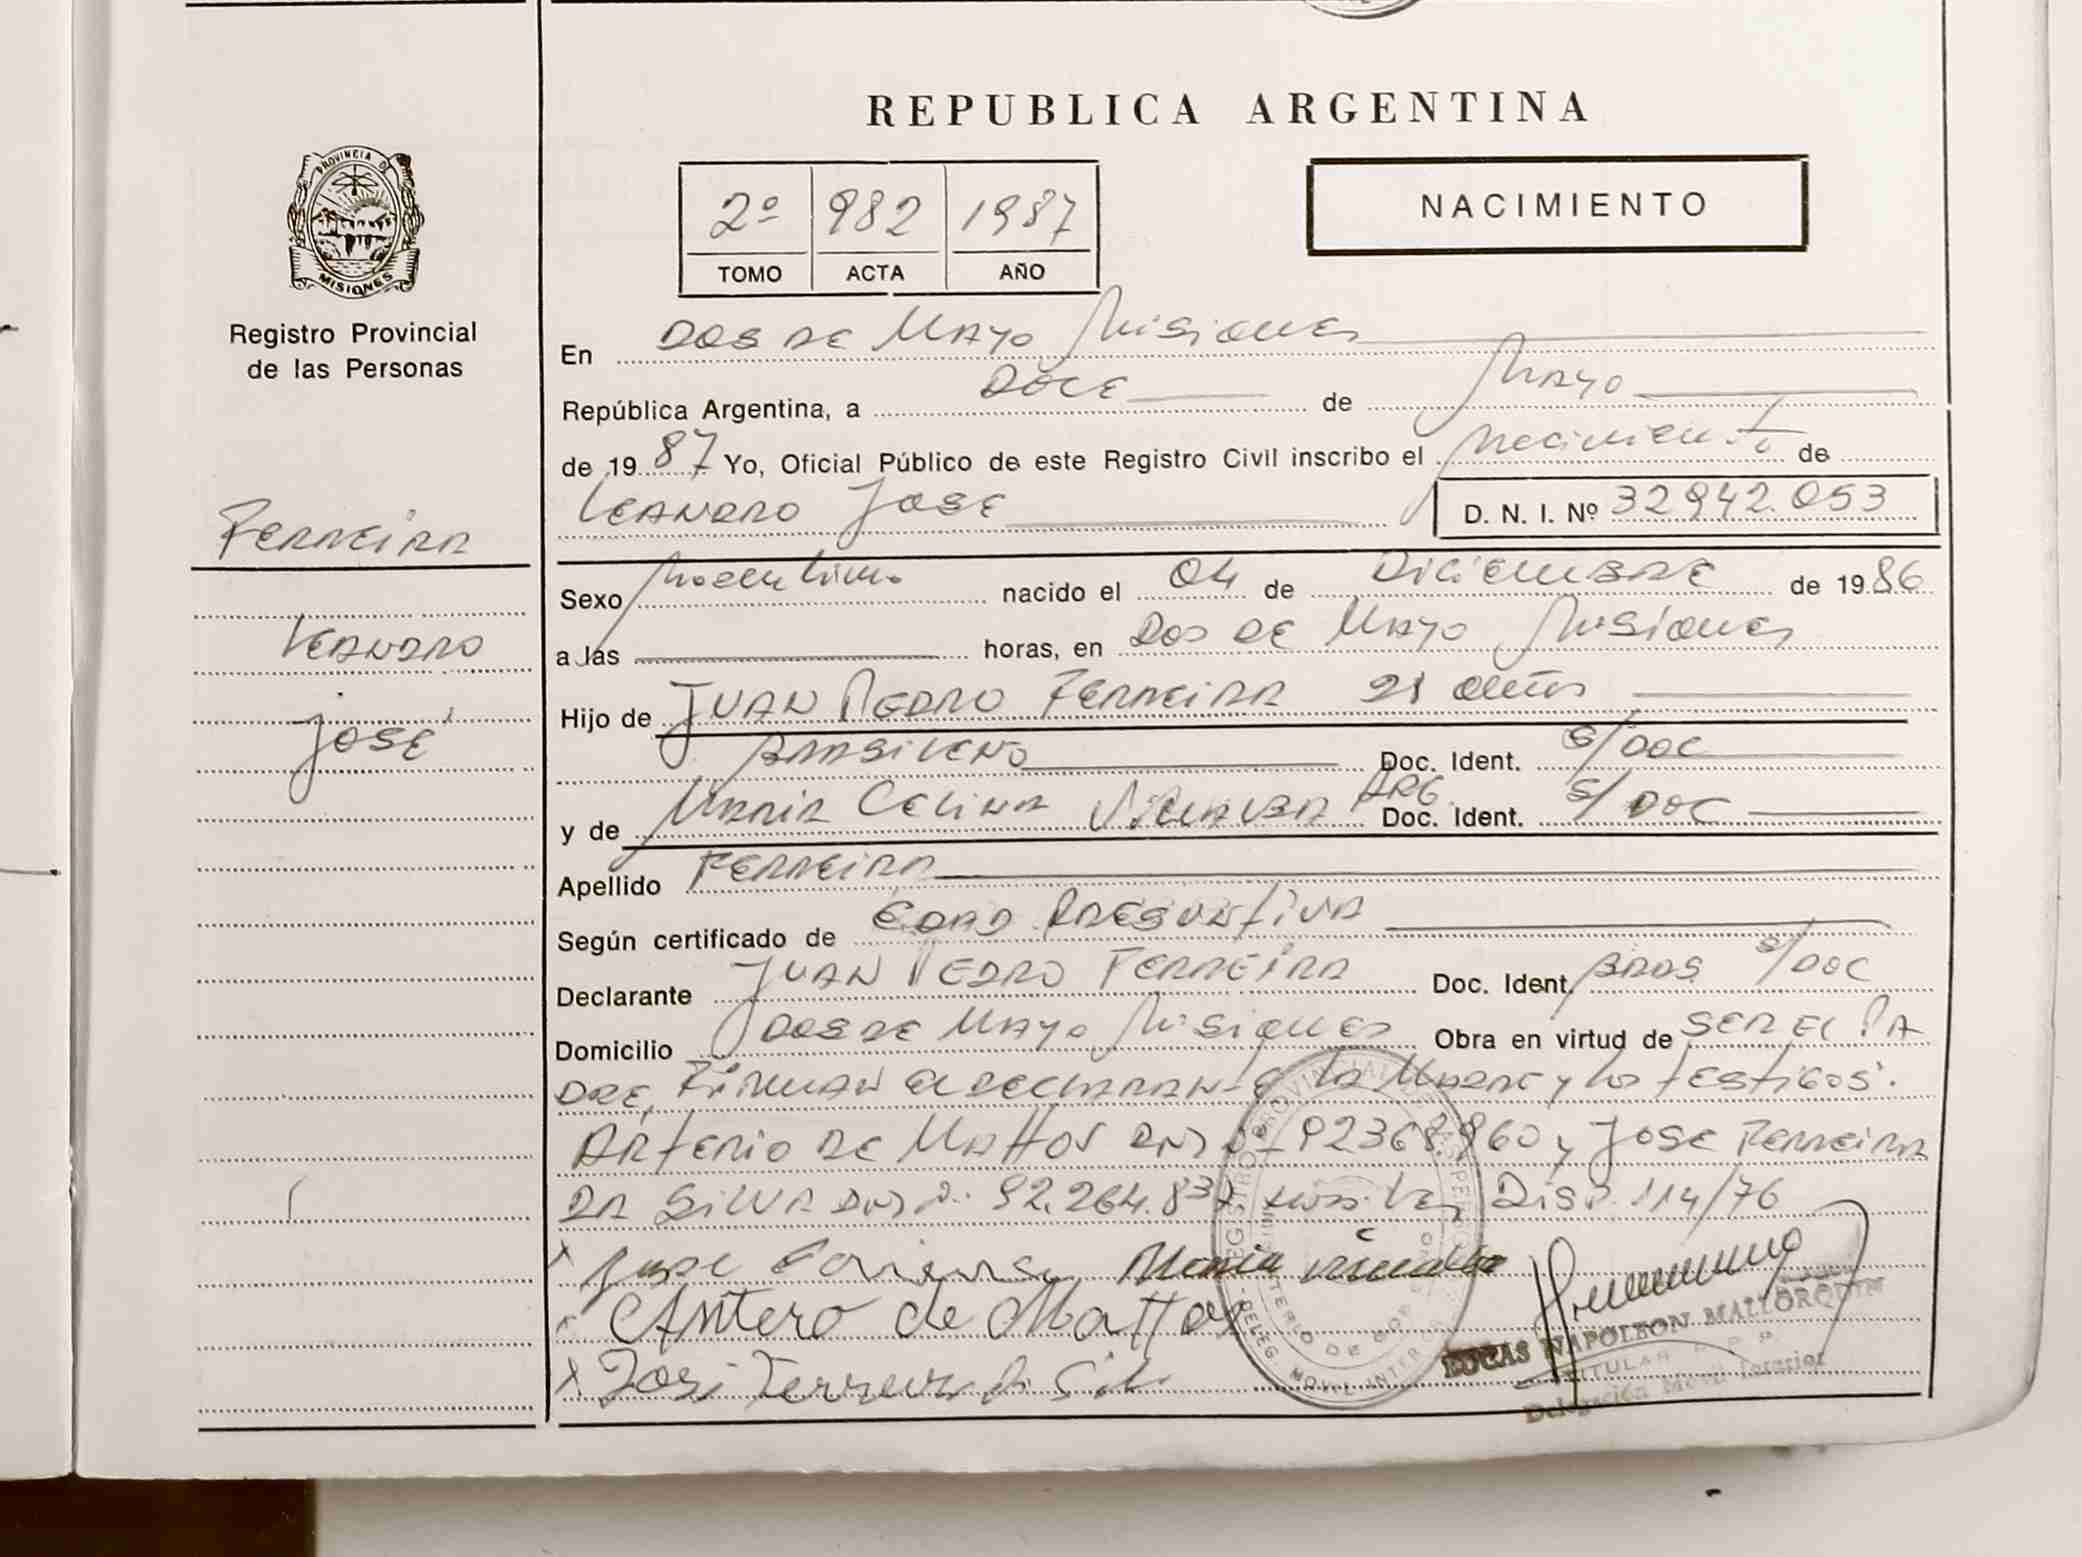 REPUBLICA ARGENTINA
2º 982 1987
TOMO ACTA AÑO
NACIMIENTO
PROVINCIA DE
MISIONES
Registro Provincial
de las Personas
Ferreira
Leandro
José
En Dos de Mayo Misiones
República Argentina, a Doce de Mayo
de 1987 Yo, Oficial Público de este Registro Civil inscribo el nacimiento de
Leandro Jose D. N. I. Nº 32942.053
Sexo Masculino nacido el 04 de Diciembre de 1986
a las horas, en Dos de Mayo Misiones
Hijo de Juan Pedro Ferreira 21 años
Brasileño Doc. Ident. S/Doc
y de Maria Celina Arg Doc. Ident. S/Doc
Apellido Ferreira
Según certificado de Edad Presuntiva
Declarante Juan Pedro Ferreira Doc. Ident. Bras S/Doc
Domicilio Dos de Mayo Misiones Obra en virtud de ser el Pa
dre, Firman el declarante la Madre y los testigos.
Arterio de Mattos y Jose Ferreira
Da Silva 92.264.837 Disp. 114/76
Maria
Antero de Mattos
LUCAS NAPOLEON MALLORQUIN
TITULAR
Delegación Movil Interior